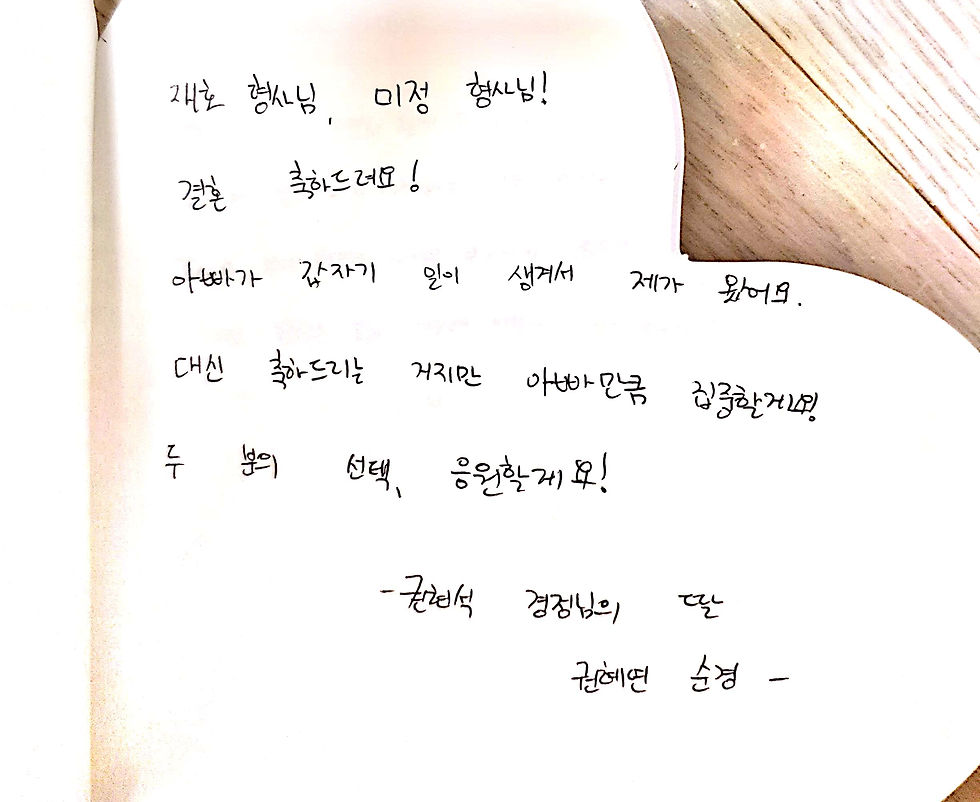 재호 형사님, 미정 형사님!
결혼 축하드려요!
아빠가 갑자기 일이 생겨서 제가 왔어요.
대신 축하드리는 거지만 아빠만큼 집중할게요!
두 분의 선택, 응원할게요!
-권현석 경정님의 딸
권혜연 순경 -